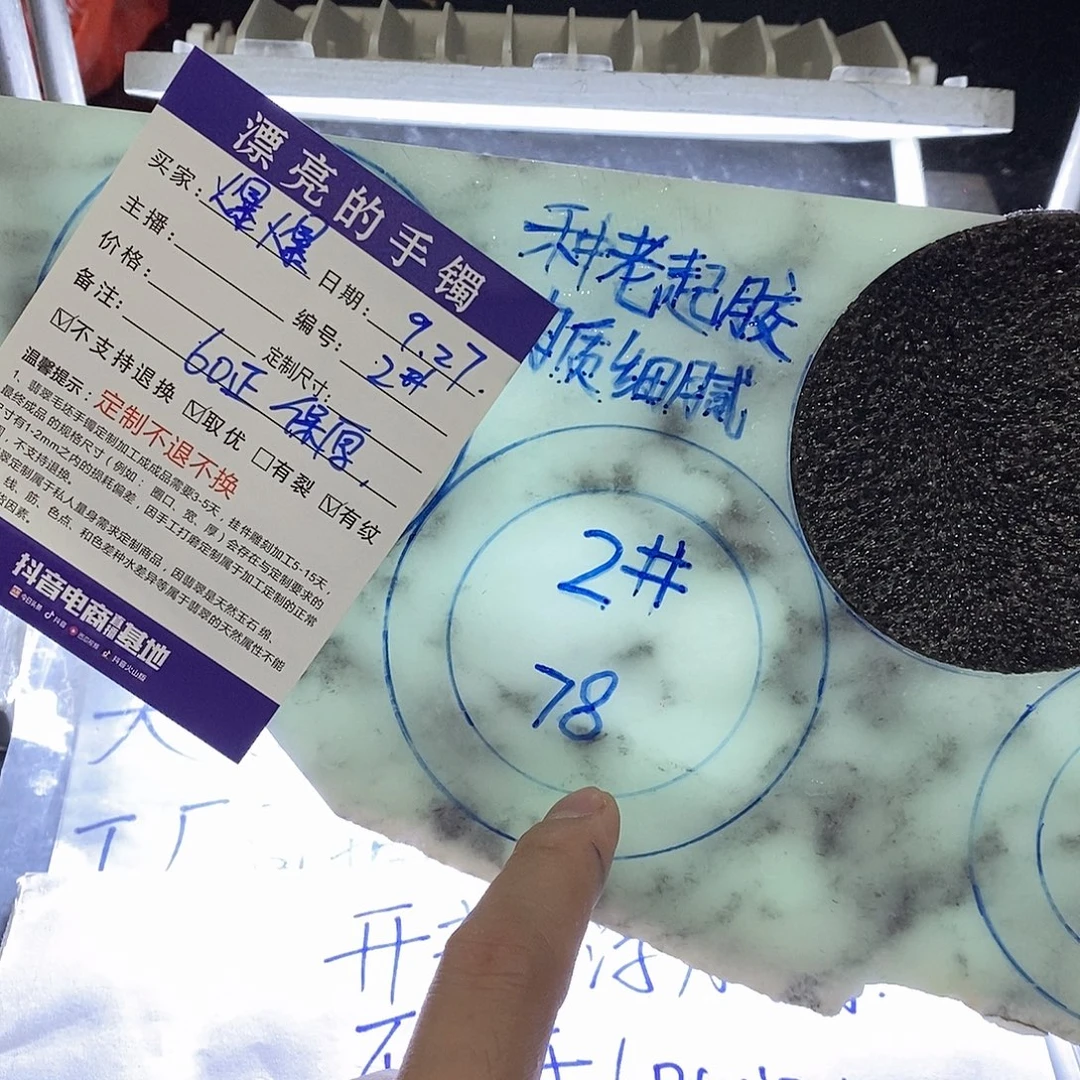 漂亮的手镯
买家：爆爆
主播：
日期：9.27.
价格：
编号：2#
备注：60正保圆.
定制尺寸：
不支持退换 取优 有裂 有纹
温馨提示：定制不退不换
1、翡翠毛坯手镯定制加工成成品需要3-5天，挂件雕刻加工5-15天，
最终成品的规格尺寸（例如：圈口、宽、厚）会存在与定制要求的
尺寸有1-2mm之内的损耗偏差，因手工打磨定制属于加工定制的正常
，不支持退换。
翠定制属于私人量身需求定制商品，因翡翠是天然玉石 绵、
线、筋、色点、和色差种水差异等属于翡翠的天然属性不能
因素。
抖音电商 基地
今日头条 抖音 西瓜视频 抖音火山版
种老起胶
肉质细腻
2#
78
大
工厂
开
不